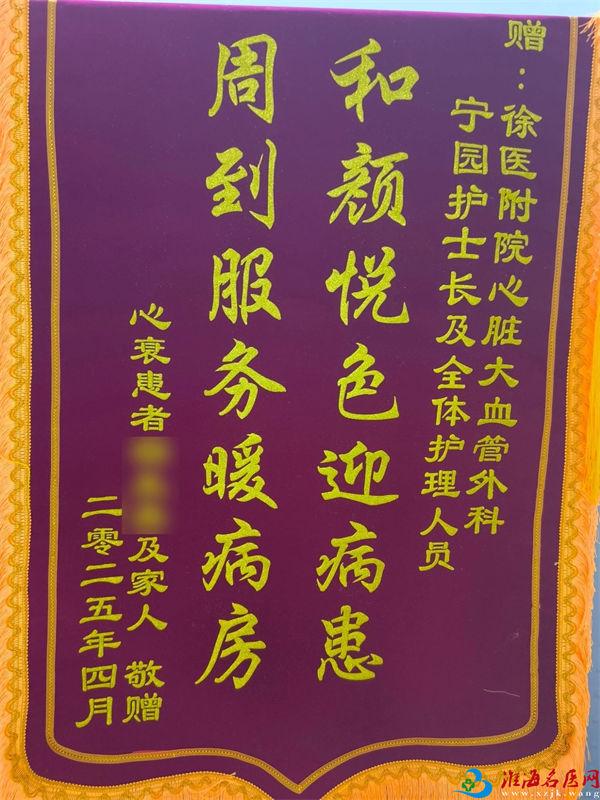 赠：徐医附院心脏大血管外科
宁园护士长及全体护理人员
和颜悦色迎病患
周到服务暖病房
心衰患者 及家人 敬赠
二零二五年四月
淮海名医网
www.xzjk.wang